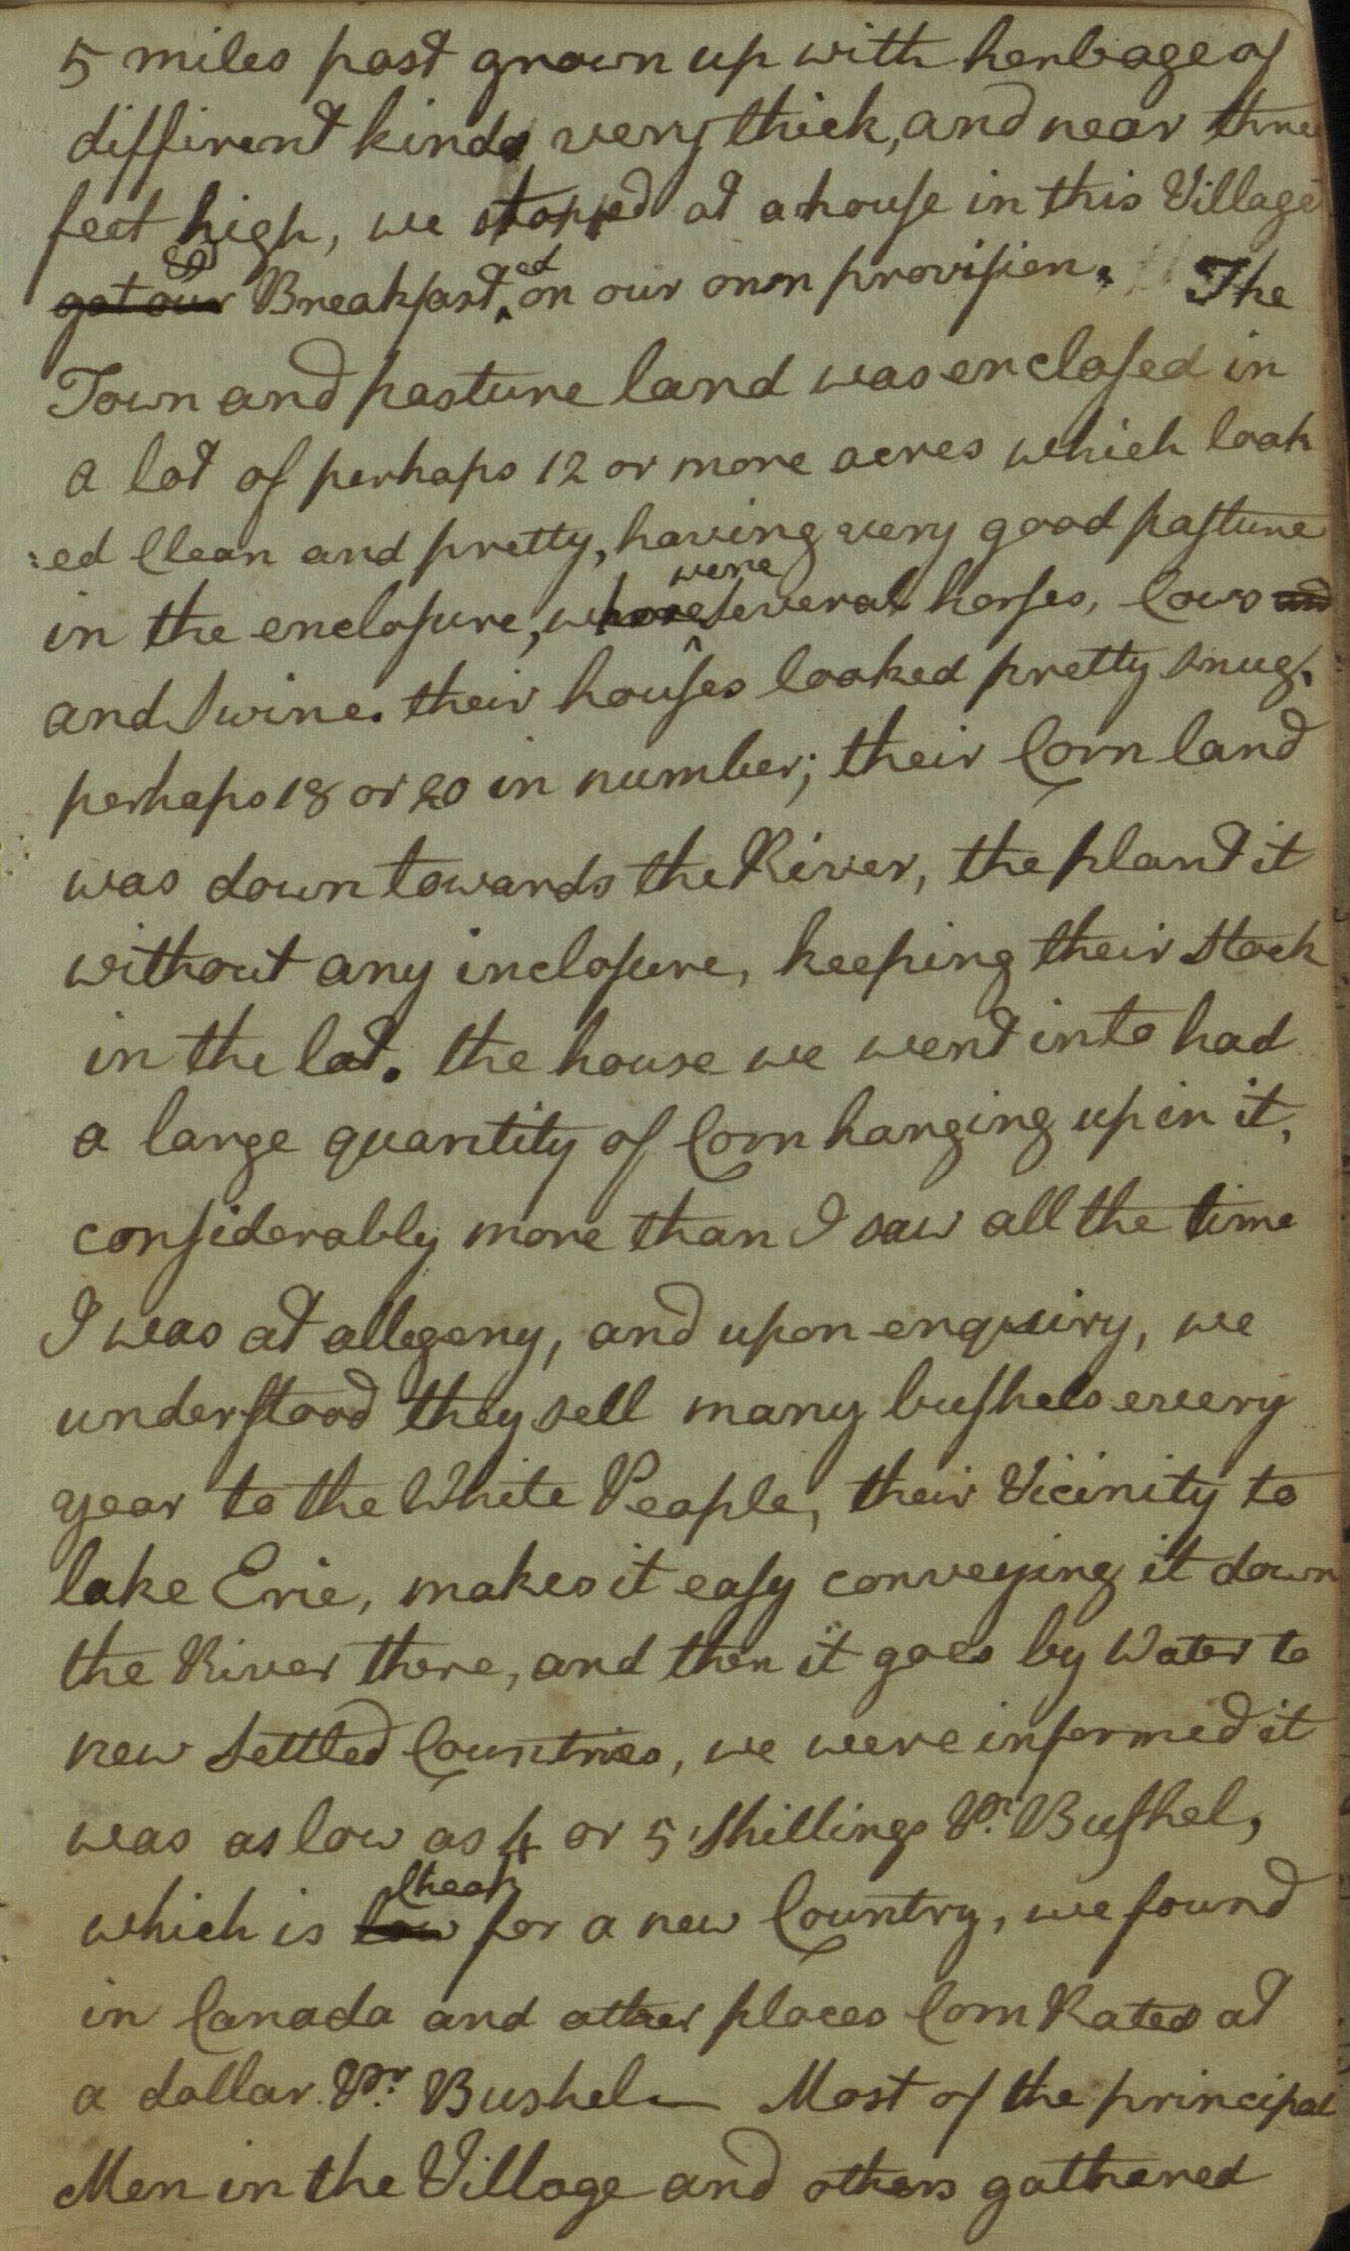 5 miles past grown up with herbage of
diffirent kinds very thick, and near three
feet high, we stopped at a house in this Village
got our & Breakfast,ed on our own provision. The
Town and pasture land was enclosed in
a lot of perhaps 12 or more acres which look
:ed Clean and pretty, having very good pasture
in the enclosure, where were several horses, Cows and
and Swine. their houses looked pretty snug,
perhaps 18 or 20 in number; their Corn land
was down towards the River, the plant it
without any inclosure, keeping their stock
in the lot. the house we went into had
a large quantity of Corn hanging up in it,
considerably more than I saw all the time
I was at allegeny, and upon enquiry, we
understood they sell many bushels every
year to the White People, their Vicinity to
lake Erie, makes it easy conveying it down
the River there, and then it goes by Water to
new Settled Countries, we were informed it
was as low as 4 or 5 Shillings Pr. Bushel,
which is low Cheap for a new Country, we found
in Canada and other places Corn Rates at
a dollar Pr. Bushel — Most of the principal
Men in the Village and others gathered